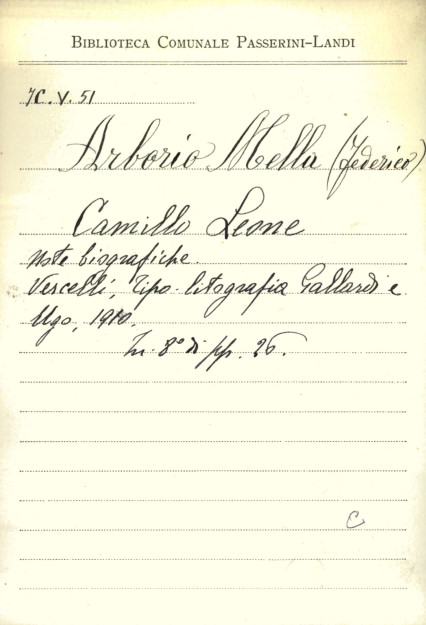 BIBLIOTECA COMUNALE PASSERINI-LANDI
7C.V.51
Arborio Mella (Federico)
Camillo Leone
Note biografiche.
Vercelli, Tipo-litografia Gallardi e
Ugo, 1910.
In 8° di pp. 26.
C